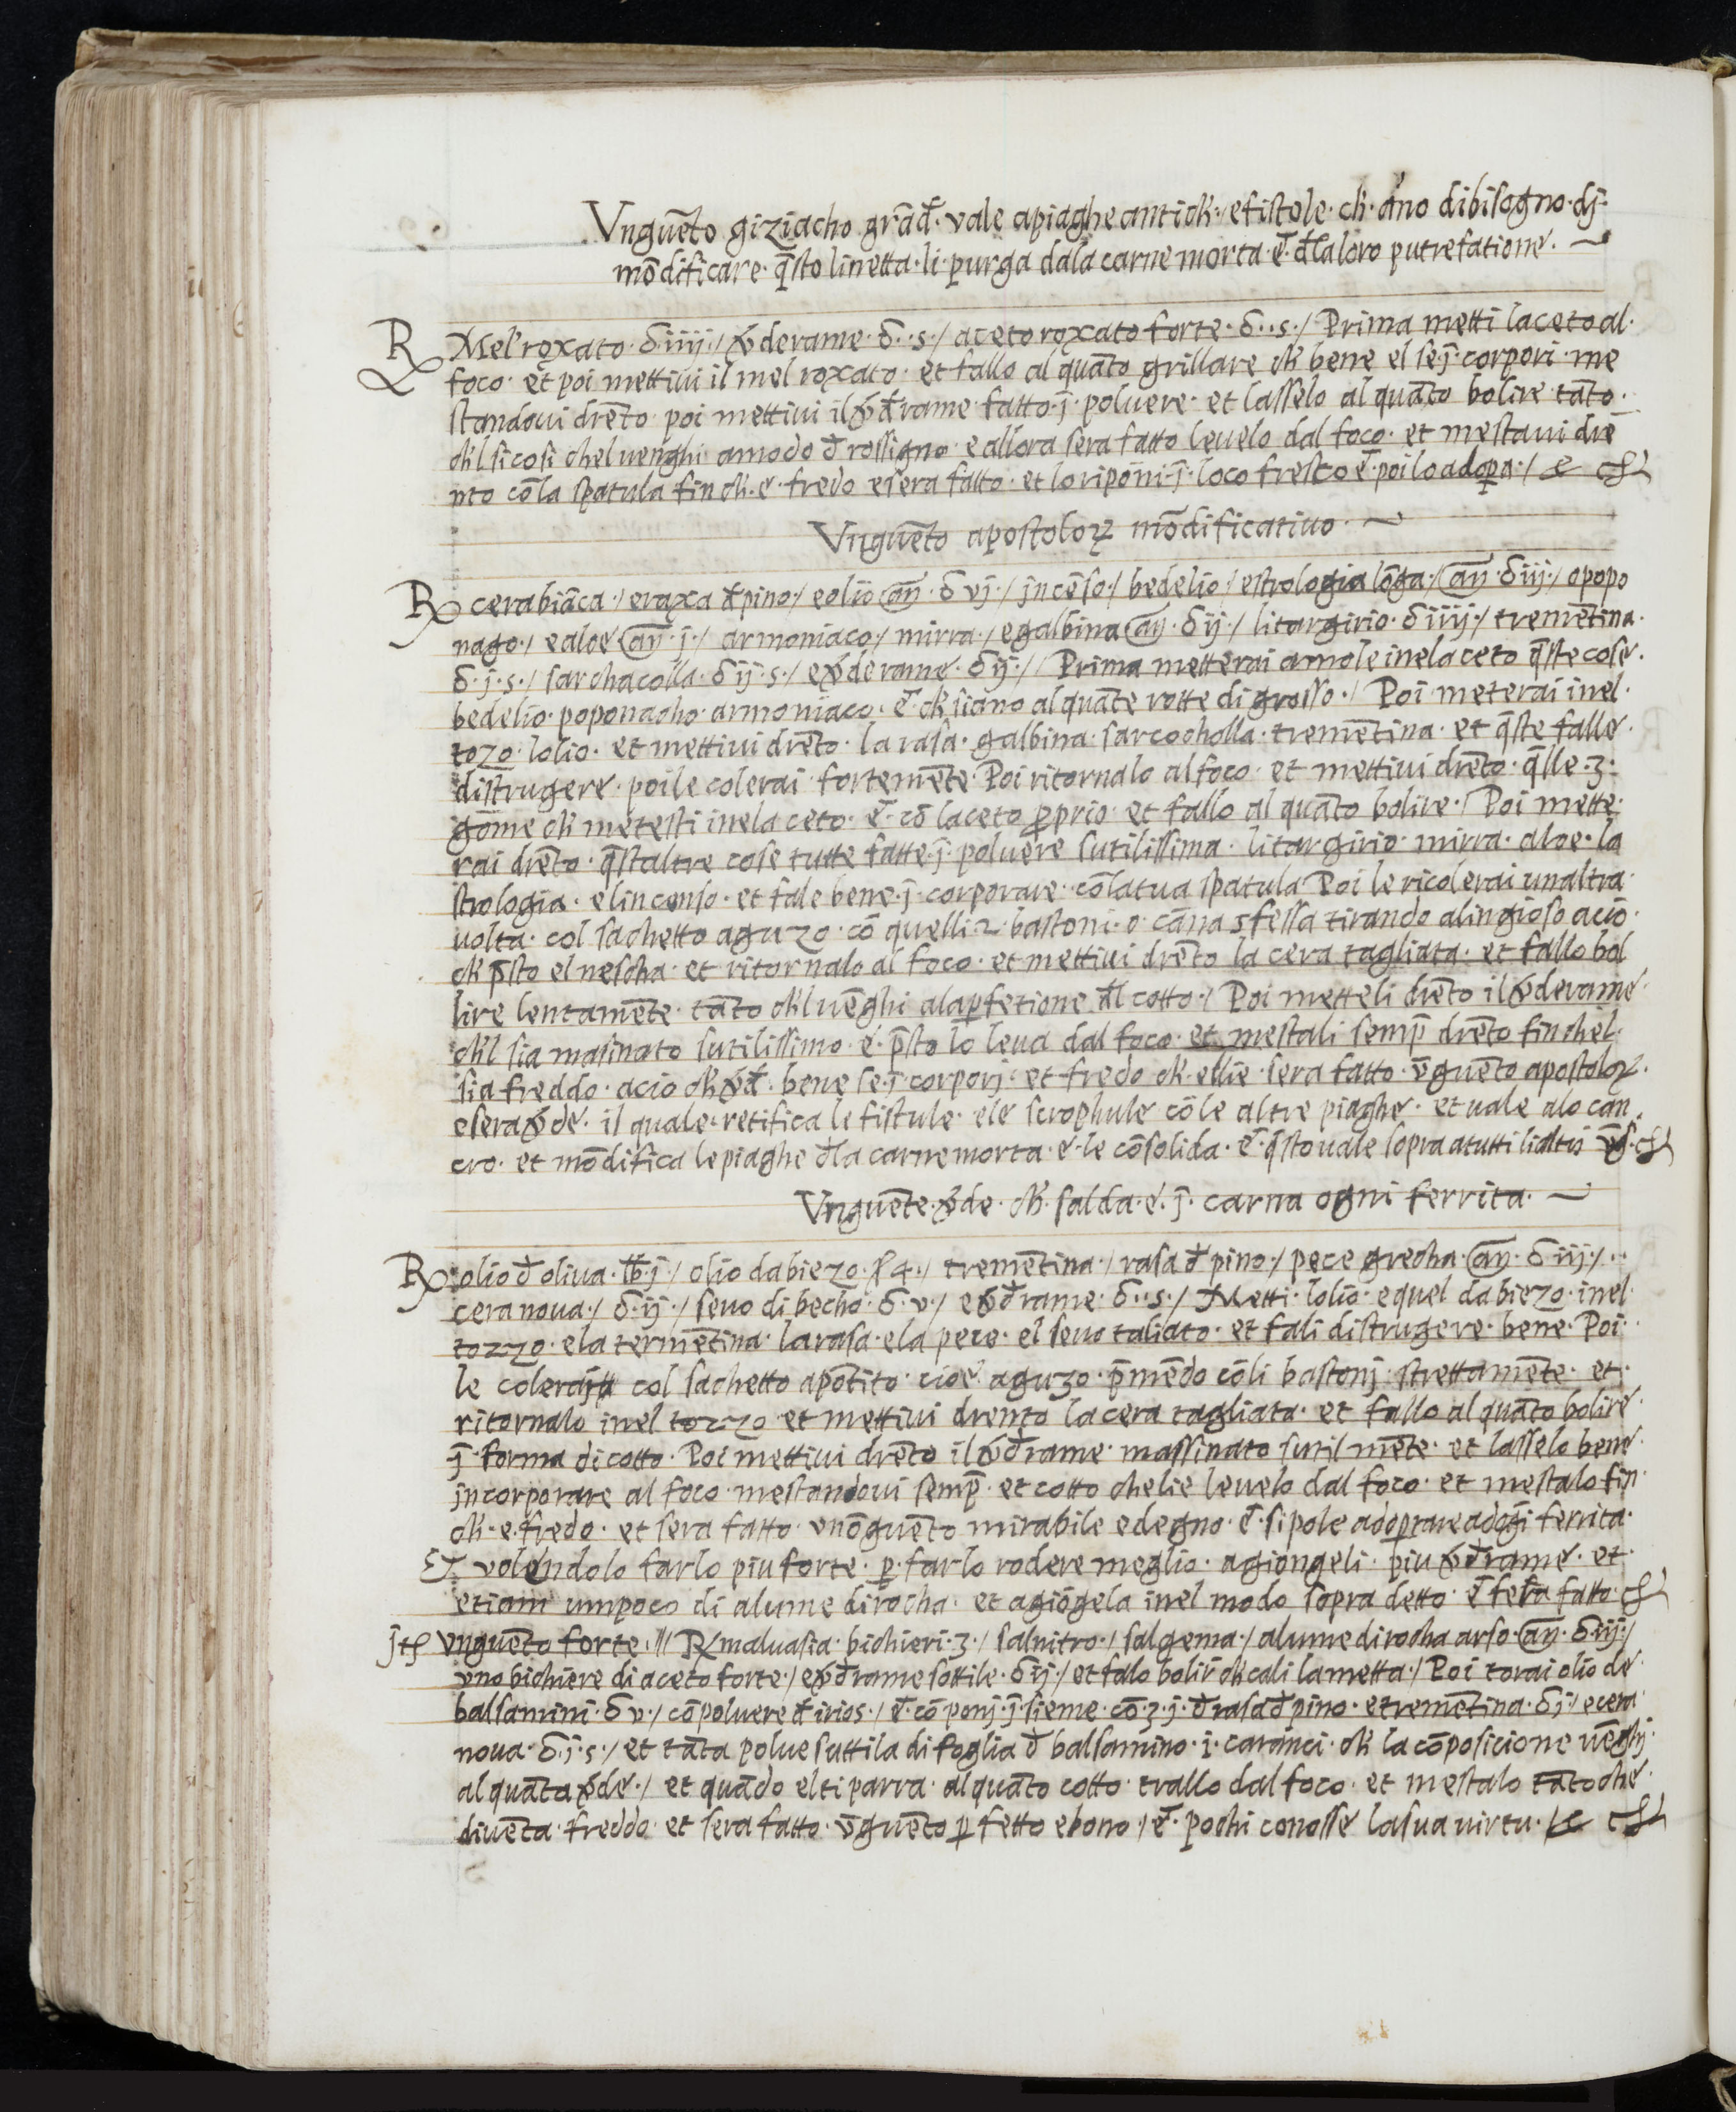 Vnguēto giziacho grād̄· vale apiaghe antich·/ efistole· ch̄· āno dibisogno· dj·
mōdificare· q̄sto linetta· li· purga dala carne morta· ē· d̄la loro putrefatione·
℞ Mel roxato· δ iiij·/ v̄derame· δ··s·/ aceto roxato forte· δ··s·/ Prima metti laceto al·
foco· et poi mettiui il mel roxato· et fallo al quāto grillare ch̄ bene el se·j̄· corpori· me
standoui drēto· poi mettiui il v̄d̄rame· fatto·j̄· poluere· et lasselo al quāto bolire tāto·
ch̄l si cosi chel uenghi· amodo d̄ rossigno· e allora sera fatto leuelo dal foco· et mestaui dre
nto cō la spatula fin ch̄·e· fredo e sera fatto· et lo ripōni·j̄· loco fresco ē· poi lo adopa·/
Vnguēto apostoloꝝ mōdificatiuo
℞ cera biāca·/ eraxa d̄ pino·/ eolio añ· δ vj·/ jncēso·/ bedelio·/ estrologia lōga·/ añ· δ iij·/ opopo
nago·/ e aloe añ· j·/ armoniaco·/ mirra·/ e galbina añ· δ ij·/ litargirio· δ iiij·/ tremētina·
δ·j·s·/ sarchacolla· δ ij·s·/ e v̄derame· δ ij·/ Prima metterai amole inelaceto q̄ste cose·
bedelio· poponacho· armoniaco· ē· ch̄ siano al quāte rotte di grosso·/ Poi meterai inel·
tozo· lolio· et mettiui drēto· la rasa· galbina· sarcocholla· tremētina· et q̄ste falle·
distrugere· poi le colerai· fortemēte· Poi ritornalo al foco· et mettiui drēto· q̄lle·3·
gōme ch̄ metesti inelaceto· ē· cō laceto pprio· et fallo al quāto bolire·/ Poi mette
rai drēto· q̄staltre cose tutte fatte·j̄· poluere sutilissima· litargirio· mirra· aloe· la
strologia· elincenso· et fale bene·j̄· corporare· cō la tua spatula Poi le ricolerai unaltra·
uolta· col sachetto aguzo· cō quelli·2· bastoni· o· cāna sfessa tirando alingioso aciō·
ch̄ p̄sto el nescha· et ritornalo al foco· et mettiui drēto la cera tagliata· et fallo bol
lire lentamēte· tāto ch̄l uēghi ala pfetione d̄l cotto·/ Poi metteli drēto il v̄derame·
ch̄l sia masinato sutilissimo· ē· p̄sto lo leua dal foco· et mestali semp̄ drēto fin chel·
sia freddo· acio ch̄ v̄d̄· bene se·j̄· corporj· et fredo ch̄ ellie· sera fatto· v̄guēto apostoloꝝ·
e sera v̄de· il quale· retifica le fistule· ele scrophule cō le altre piaghe· et uale alo can
cro· et mōdifica le piaghe d̄la carne morta· e· le cōsolida· ē· q̄sto uale sopra a tutti li altri
Vnguēte· v̄de· ch̄· salda· e· j̄· carna ogni ferrita·
℞ olio d̄ oliua· lb̄·j·/ olio dabiezo· 4·/ tremētina·/ rasa d̄ pino·/ pece grecha· añ· δ iij·/··
cera noua·/ δ·ij·/ seuo di becho· δ·v·/ e v̄d̄rame· δ··s·/ Metti· lolio· e quel dabiezo· inel·
tozzo· ela termētina· la rasa· ela pece· el seuo taliato· et fali distrugere· bene· Poi··
le colerai col sachetto apōtito· cioe· aguzo· p̄mēdo cō li bastonj· strettamēte· et·
ritornalo inel tozzo· et mettiui drento la cera tagliata· et fallo al quāto bolire·
j̄· forma di cotto· Poi mettiui drēto il v̄d̄rame· massinato sutilmēte· et lasselo bene·
jncorporare al foco· mestandoui semp̄· et cotto chelie leuelo dal foco· et mestalo fin·
ch̄· e· fredo· et sera fatto· vnōguēto mirabile e degno· ē· si pole adoprare ad ogi ferrita·
Et· volendolo farlo piu forte· p· farlo rodere meglio· agiongeli· piu v̄d̄rame· et·
etiam umpoco di alume di rocha· et agiōgela inel modo sopra detto· ē sera fatto
jtē vnguēto forte· /// ℞ maluasia· bichieri·3·/ salnitro·/ salgema·/ alume di rocha arso· añ· δ iij·/
vno bichiere di aceto forte·/ e v̄d̄rame sottile· δ ij·/ et falo bolir̄ ch̄ cali la metta·/ Poi torai olio de·
balsamini· δ v·/ cō poluere d̄ irios·/ ē· cō ponj·j̄·sieme· cō·ʒ·j· d̄ rasa d̄ pino· e tremētina· δ j·/ e cera·
noua· δ·j·s·/ et tāta polue suttila di foglia d̄ balsamino· i· caranci· ch̄ la cōposicione uēghj·
al quāta v̄de·/ et quādo el ti parra· al quāto cotto· trallo dal foco· et mestalo tāto che·
diuēta· freddo· et sera fatto· v̄guēto p fetto e bono·/ ē· pochi conosse la sua uirtu·/